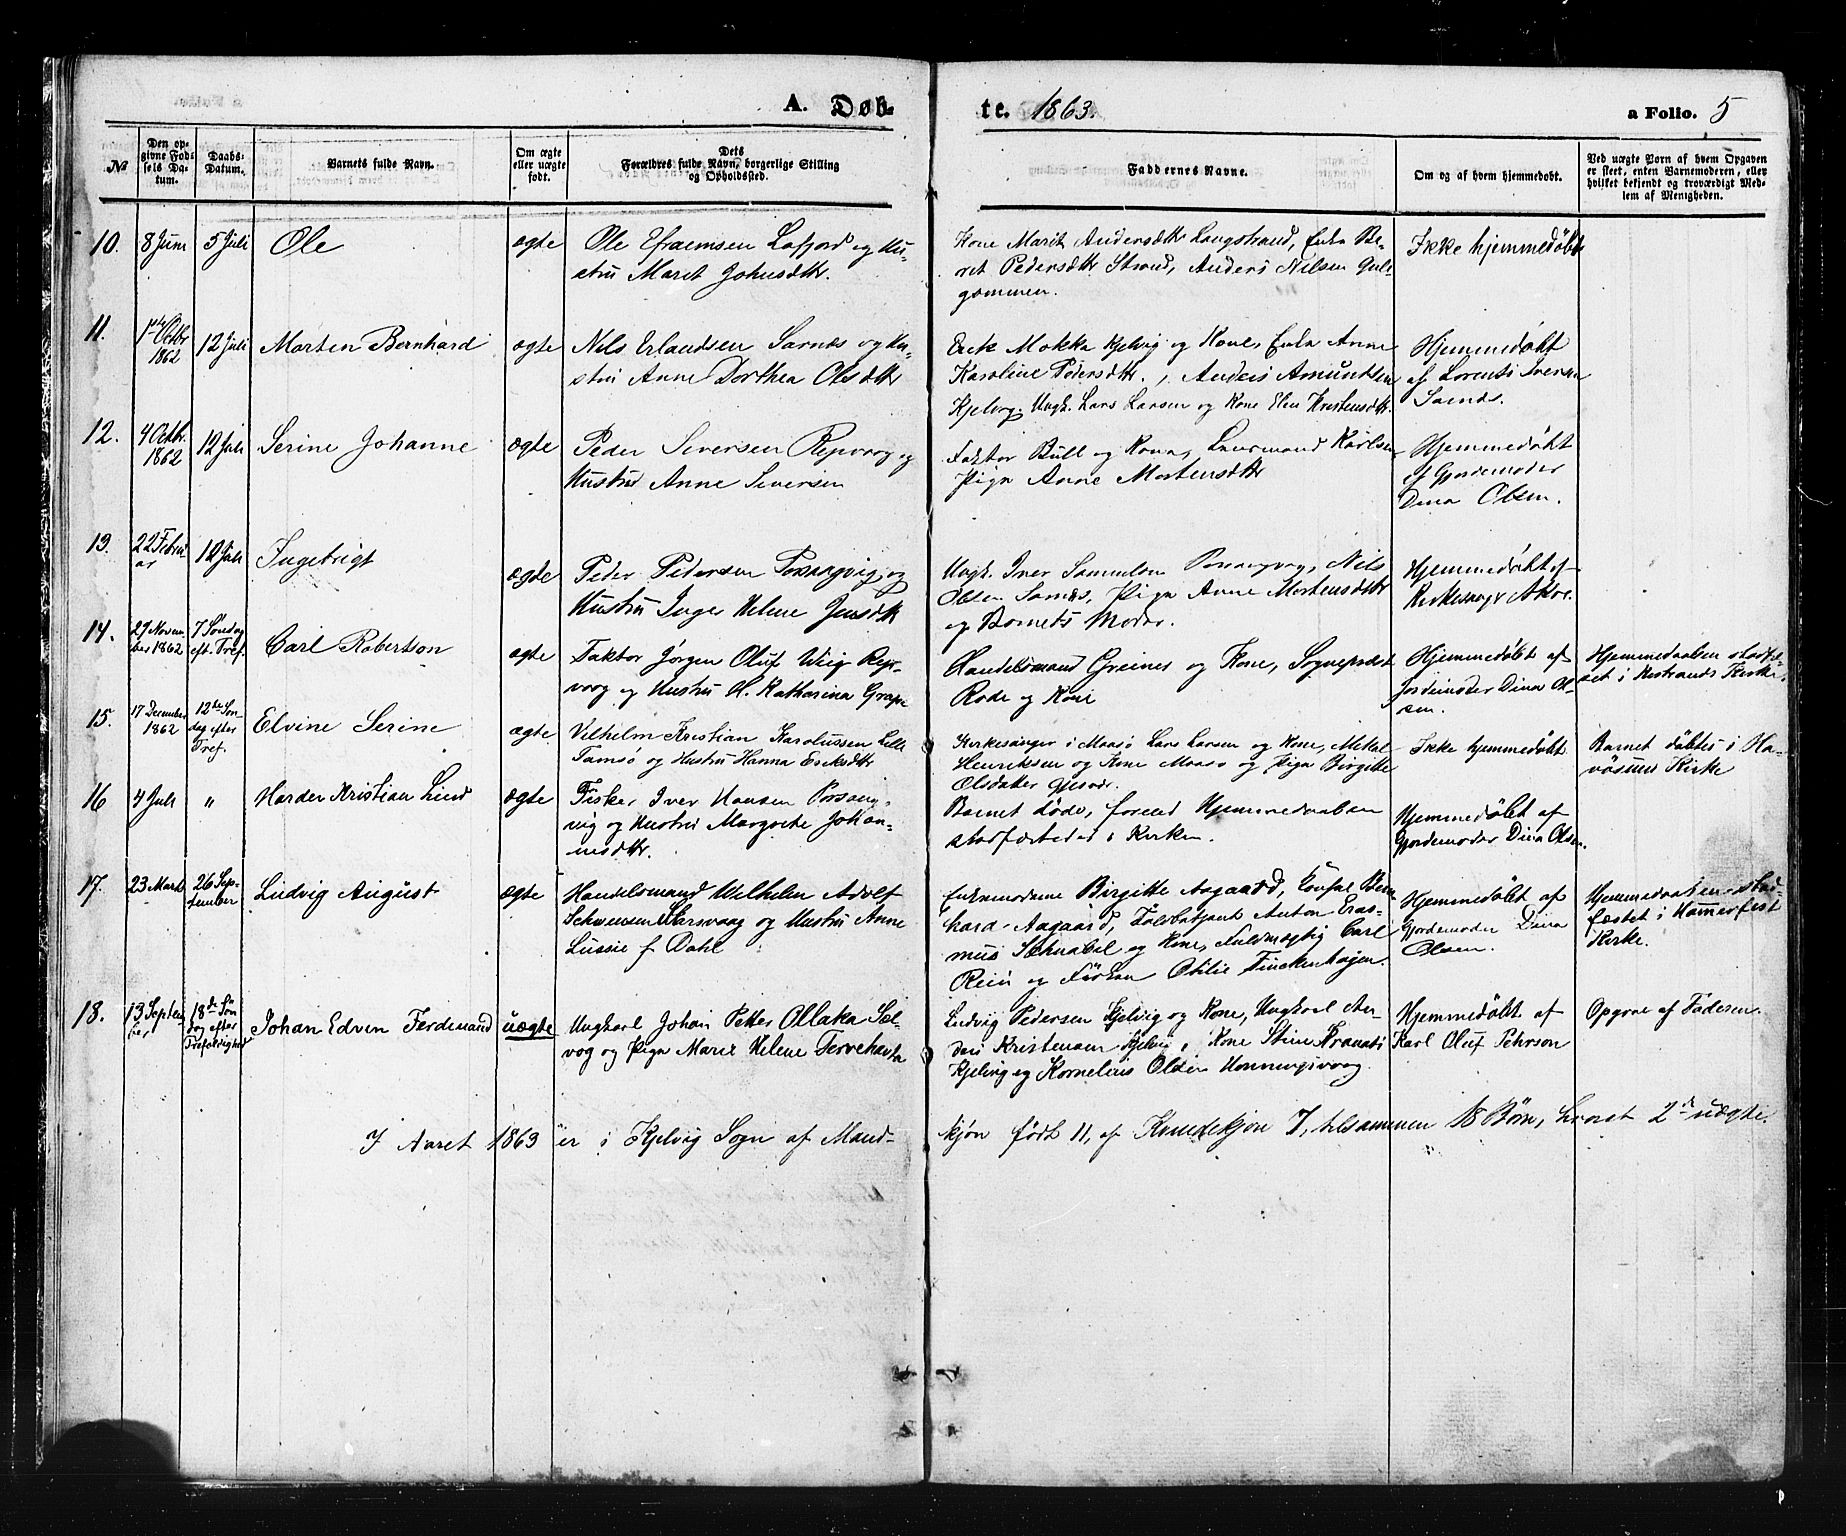 A. Døb-
te. 1863. a Folio. 5
№
Den op-
givne Fød-
sels Da-
tum.
Daabs-
Datum.
Barnets fulde Navn.
Om ægte
eller uægte
født.
Dets
Forældres fulde Navn, borgerlige Stilling
og Opholdssted.
Faddernes Navne.
Om og af hvem hjemmedøbt.
Ved uægte Børn af hvem Opgaven
er skeet, enten Barnemoderen, eller
hvilket bekjendt og troværdigt Med-
lem af Menigheden.
10. 8 Juni 5 Juli Ole ægte
Ole Efraemsen Lafjord og Hu-
stru Marit Johnsdttr.
Kone Marit Andersdttr Langstrand, Enke Be-
ret Pedersdttr Strand, Anders Nilsen Gul-
gammen.
Ikke hjemmedøbt
11. 1ste Octbr
1862
12 Juli Morten Bernhard ægte
Nils Erlandsen Sarnæs og Hu-
stru Anne Dorthea Olsdttr
Erik Mokka Kjelvig og Kone, Enke Anne
Karoline Pedersdttr., Anders Amundsen
Kjelvig. Ungk. Lars Larsen og Kone Elen Kristensdttr.
Hjemmedøbt
af Lorents Svensen
Sarnæs.
12. 4 Octbr.
1862
12 Juli Serine Johanne ægte
Peder Seversen Repvog og
Hustru Anne Seversen
Faktor Bull og Kone, Karlsen
Pige Anne Mortensdttr
Hjemmedøbt
af Gjordemoder
Dina Olsen.
13. 22 Febru-
ar
12 Juli Ingebrigt ægte
Peder Pedersen Porsangvig og
Hustru Inger Helene Jensdtr
Ungk. Iver Porsangvog, Nils
Olsen Sarnæs, Pige Anne Mortensdttr
og Barnets Moder.
Hjemmedøbt af
Kirkesanger Akre.
14. 29 Novem-
ber 1862
7 Søndag
eft. Tref.
Carl Robertson ægte
Faktor Jørgen Oluf Wiig Rep-
vog og Hustru H. Katharina Grape
Handelsmand Greines og Kone, Sognepræst
Rode og Kone
Hjemmedøbt af
Jordemoder Dina Ol-
sen.
Hjemmedaaben stadfæ-
stet i Kistrands Kirke.
15. 17 December
1862
12te Søn-
dag efter
Tref.
Elvine Serine ægte
Vilhelm Kristian Karolussen Lille
Tamsø og Hustru Hanna Eriksdttr
Kirkesanger i Maasø Lars Larsen og Kone, Mikal
Henriksen og Kone Maasø og Pige Birgitte
Olsdatter Gjesvær.
Ikke hjemmedøbt
Barnet døbtes i Ha-
vøsunds Kirke
16 4 Juli " Harder Kristian Lind ægte
Fisker Iver Hansen Porsang-
vig og Hustru Margrete Johan-
nesdttr.
Barnet døde, forend Hjemmedaaben
stadfæstedes i Kirken.
Hjemmedøbt af
Gjordemoder Dina Olsen.
17. 23 Marts 26 Sep-
tember
Ludvig August ægte
Handelsmand Wilhelm Adolf
Schwensen Skarsvaag og Hustru Anne
Lussie f. Dahl
Enkemadame Birgitte Aagaard, Konsul Bern-
hard Aagaard, Toldbetjent Anton Eras-
mus Schnabel og Kone, Fuldmægtig Carl
Rein og Frøken Otilie Finckenhagen.
Hjemmedøbt af
Gjordemoder Dina
Olsen.
Hjemmedaaben stad-
fæstet i Hammerfest
Kirke.
18. 13 Septem-
ber
18de Søn-
dag efter
Trefoldighed
Johan Edvin Ferdinand uægte
Ungkarl Johan Petter Ollaka Sel-
vog og Pige Marie Helene Tervehavta
Ludvig Pedersen Kjelvig og Kone, Ungkarl An-
ders Kristensen Kjelvig, Kone Stine
Kjelvig og Kornelius Olsen Honningsvaag.
Hjemmedøbt af
Karl Oluf Pehrson
Opgave af Faderen.
I Aaret 1863 er i Kjelvig Sogn af Mand-
kjøn født 11, af Kvindekjøn 7, tilsammen 18 Børn, hvoraf 2 uægte.